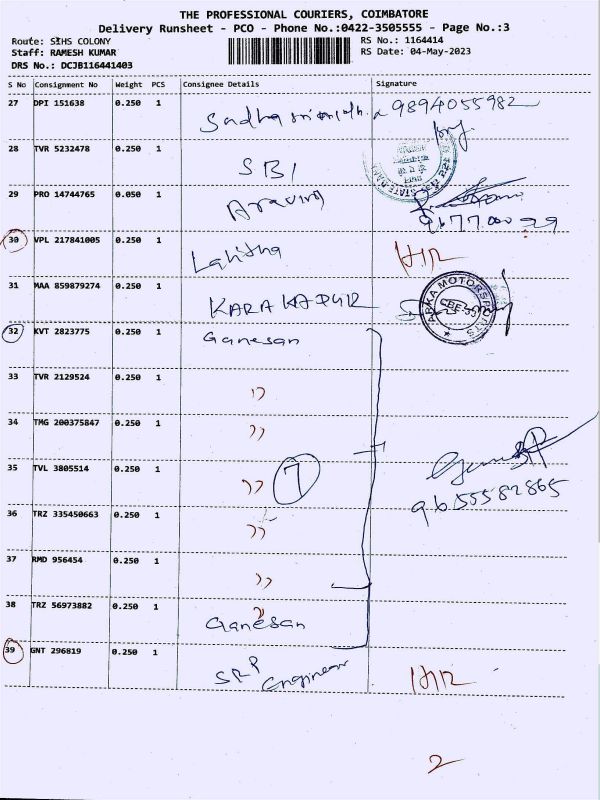 THE PROFESSIONAL COURIERS, COIMBATORE
Delivery Runsheet - PCO - Phone No.:0422-3505555 - Page No.:3
Route: SIHS COLONY RS No.: 1164414
Staff: RAMESH KUMAR RS Date: 04-May-2023
DRS No.: DCJB116441403
S No Consignment No Weight PCS Consignee Details Signature
27 DPI 151638 0.250 1 9894055982
28 TVR 5232478 0.250 1 SBI
29 PRO 14744765 0.050 1 Aravind
30 VPL 217841005 0.250 1 Lalitha
31 MAA 859879274 0.250 1 ARKA MOTORSPORTS
32 KVT 2823775 0.250 1 Ganesan
33 TVR 2129524 0.250 1 ))
34 TMG 200375847 0.250 1 ))
35 TVL 3805514 0.250 1 )) 7
9655582865
36 TRZ 335450663 0.250 1 ))
37 RMD 956454 0.250 1 ))
38 TRZ 56973882 0.250 1 Ganesan
39 GNT 296819 0.250 1 SRP Engineer
2